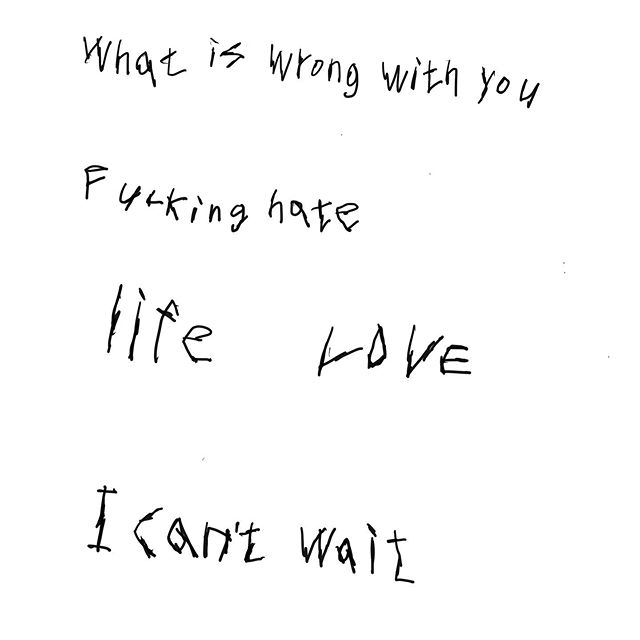 What is wrong with you
Fucking hate
life LOVE
I can't wait